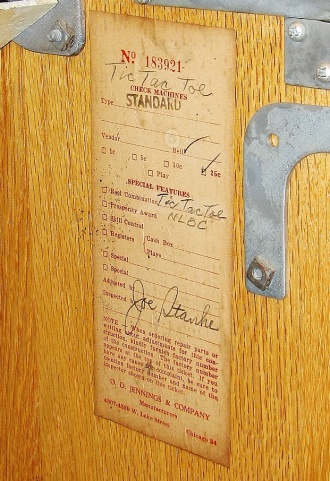 No 183921
Tic Tac Toe
CHECK MACHINES
Type STANDARD
Vendor Bell
1c 5c 10c 25c
Play
SPECIAL FEATURES
Reel Combination Tic Tac Toe
Prosperity Award NLBC
Skill Control
Registers Cash Box
Plays
Special
Special
Adjusted by
Inspected Joe Stanke
NOTE - When ordering repair parts or
writing for adjustments for this con-
struction, kindly furnish factory number
of the construction. The factory number
appears at the top of this ticket. If you
have any cause for complaint, be sure to
mention factory number and name of the
inspector shown on this ticket.
O. D. JENNINGS & COMPANY
Manufacturers
W. Lake Street Chicago 24